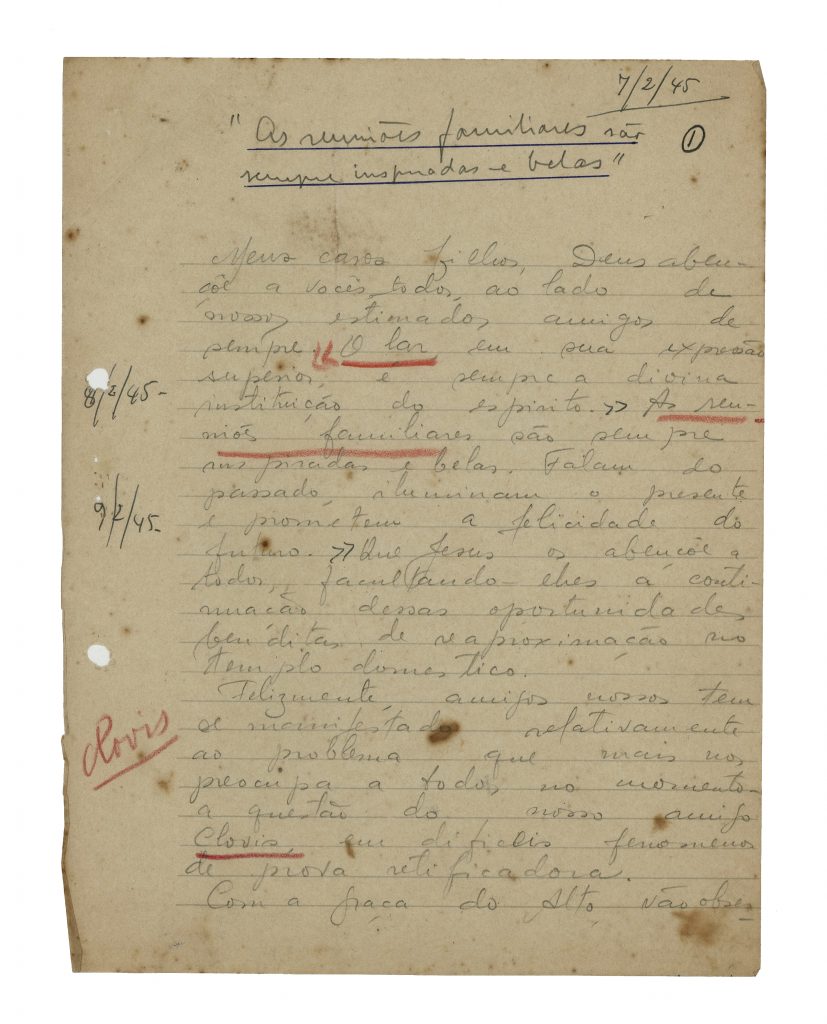 7/2/45
"As reuniões familiares são
sempre inspiradas e belas"
1
Meus caros filhos, Deus aben-
çôe a vocês todos, ao lado de
nossos estimados amigos de
sempre. « O lar, em sua expressão
superior, é sempre a divina
8/2/45-
instituição do espirito. » As reu-
niões familiares são sempre
inspiradas e belas. Falam do
passado, iluminam o presente
9/2/45-
e prométem a felicidade do
futuro. » Que Jesus os abençôe a
todos, facultando-lhes a conti-
nuação dessas oportunidades
benditas de reaproximação no
templo domestico.
Felizmente, amigos nossos tem
se manifestado relativamente
Clovis
ao problema que mais nos
preocupa a todos, no momento-
a questão do nosso amigo
Clovis, em dificeis fenomenos
de prova retificadora.
Com a graça do Alto, não obser-